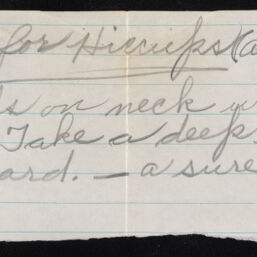 for Hiccups (a
s on neck
Take a deep
ard. — a sure